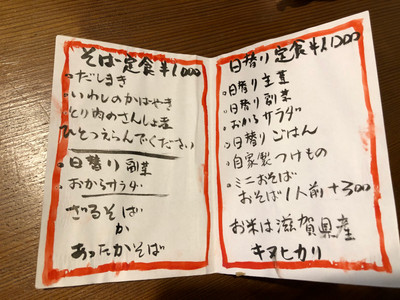 そば定食 ¥1.000
・だしまき
・いわしのかばやき
・とり肉のさんしょ煮
ひとつえらんでください
・日替り副菜
・おからサラダ
ざるそば
か
あったかそば
日替り定食 ¥1.000
・日替り主菜
・日替り副菜
・おからサラダ
・日替りごはん
・自家製つけもの
・ミニおそば
おそば1人前+300
お米は滋賀県産
キヌヒカリ